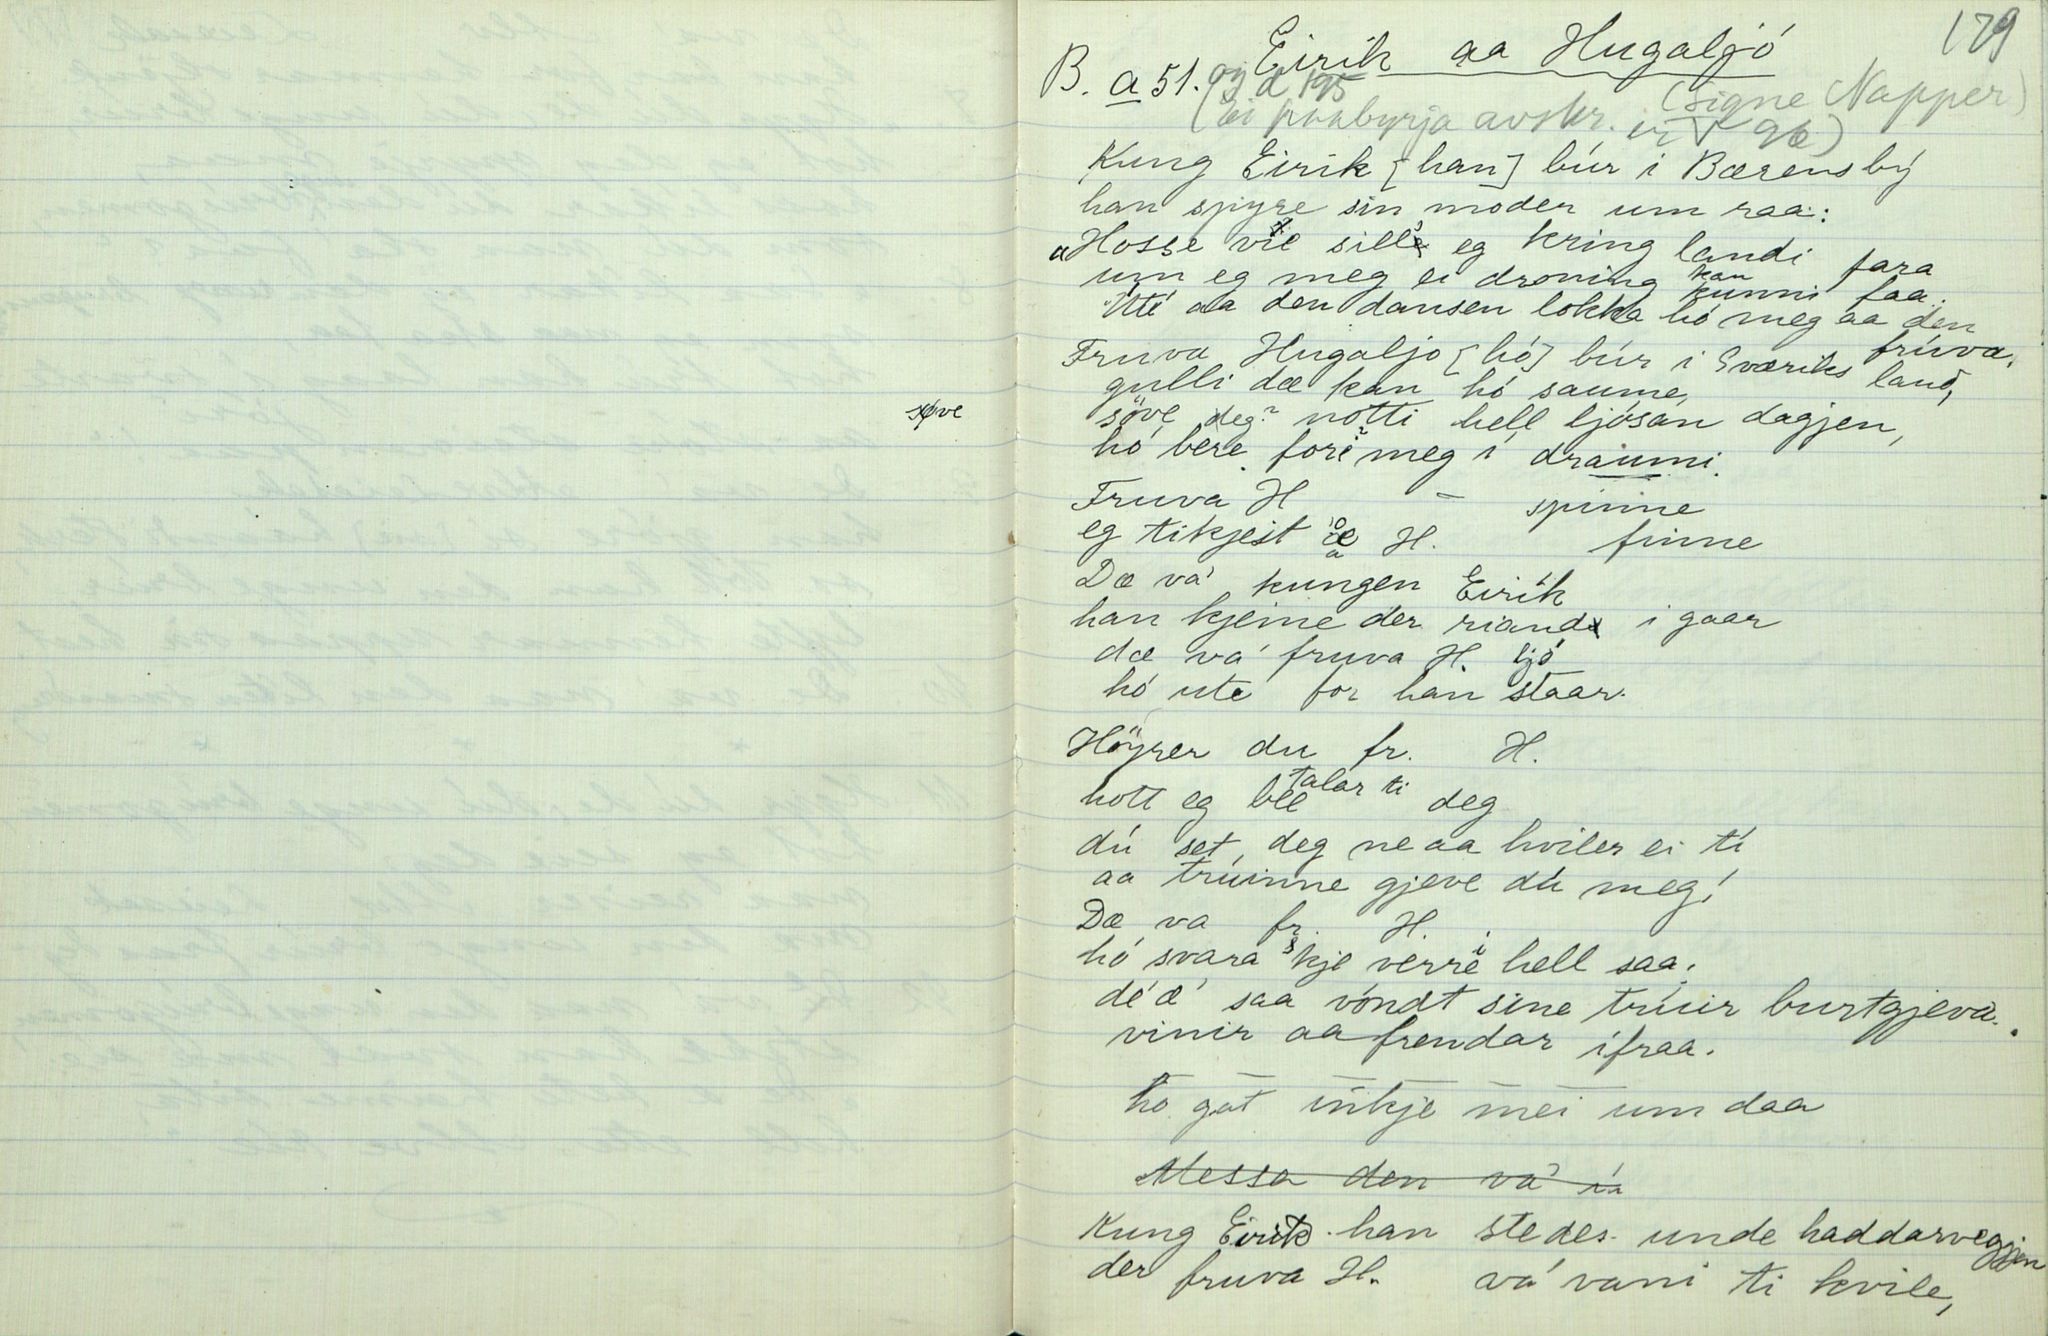 179
Eirik aa Hugaljó
B. a 51. og d 195
(Signe Napper)
(Ei paabyrja avskr. i V 96)
Kung Eirik [han] búr i Bærensbý
han spyre sin moder um raa:
Hosse vil sill eg kring landi fara
um eg meg ei droning kan kunni faa.
Uté aa den dansen lokka hó meg aa den frúva.
Fruva Hugaljo [hó] búr i Sværiks land,
gulli dæ kan hó saume,
søve
söve deg? notti hell ljósan dagjen,
hó bere fori meg i draumi.
Fruva H – spinne
eg tikjest æ H. finne
Dæ va' kungen Eirik
han kjeme der riand i gaar
dæ va' fruva H. ljó
hó ute for han staar.
Höyrer du fr. H.
hott eg vil talar ti deg
dú set deg ne aa hviler ei tí
aa trúinne gjeve dú meg!
Dæ va fr. H.
hó svara kje verri hell saa:
dé æ' saa vóndt sine trúir burtgjeva.
vinir aa frendar ifraa.
ho gat inkje mei um daa
Messa den va' ia
Kung Eirik han stedes unde haddarveggjen
der fruva H. va' vani ti kvile,